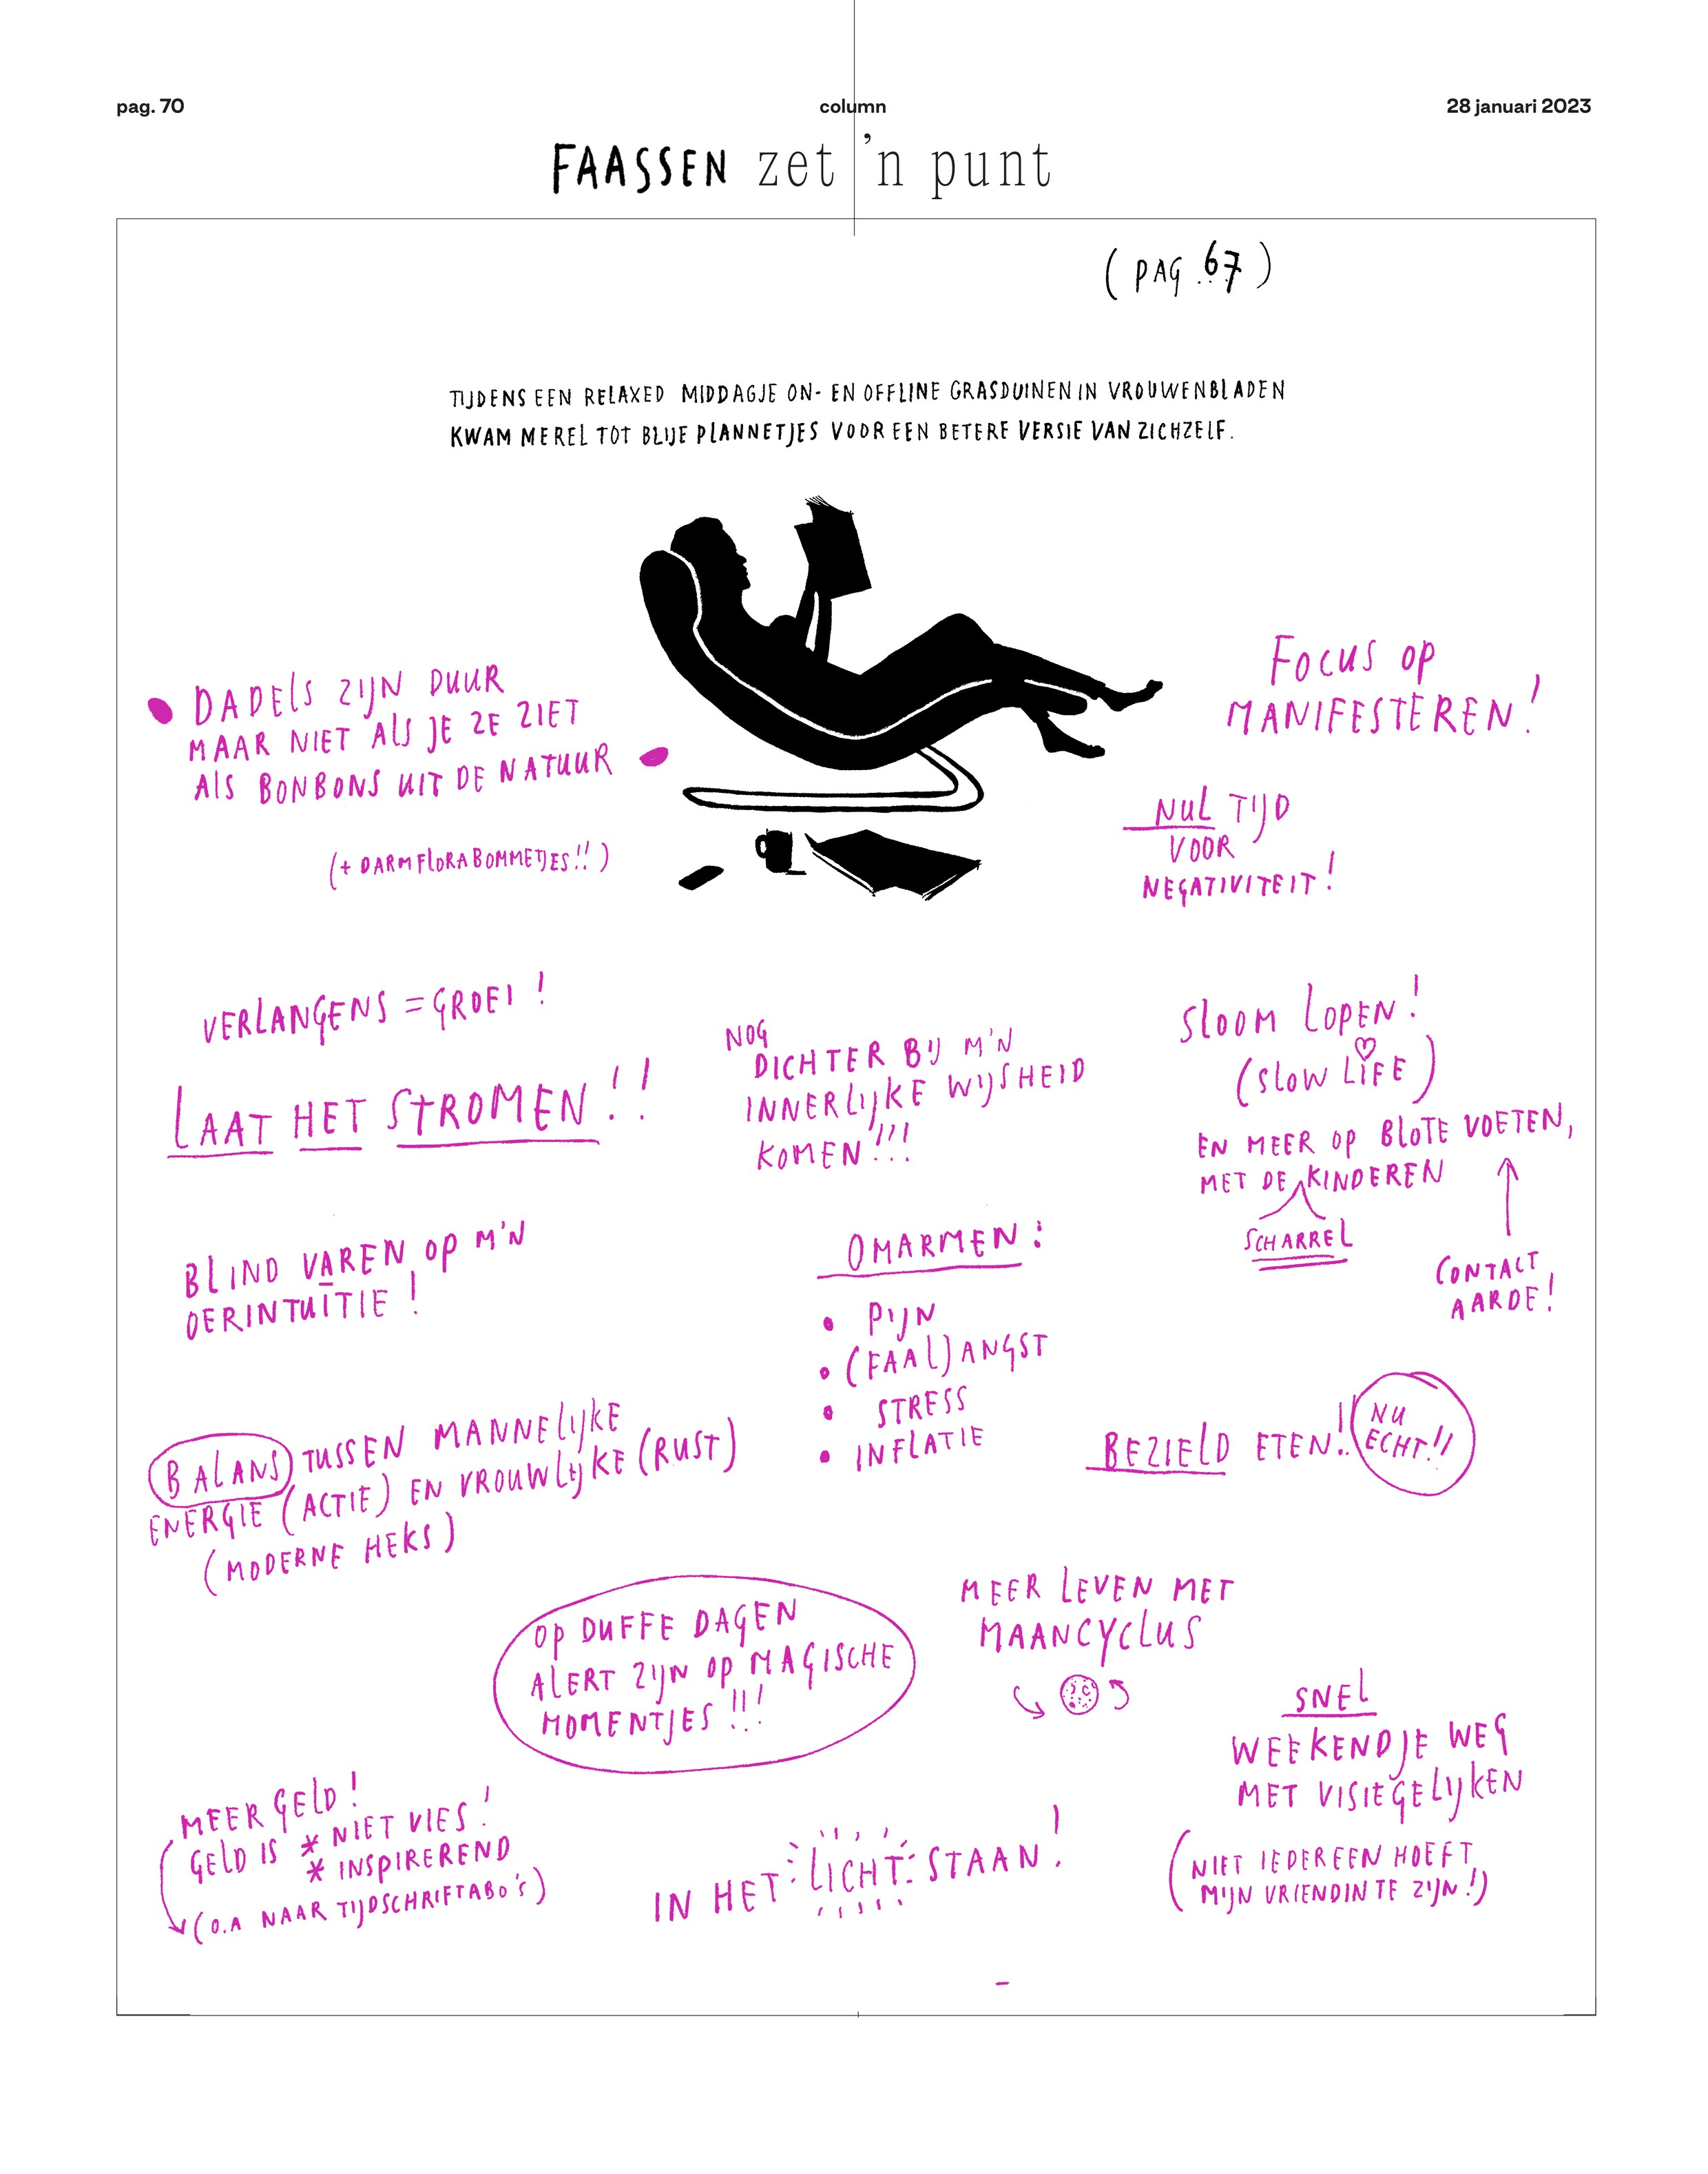 pag. 70
column
28 januari 2023
FAASSEN zet 'n punt
(PAG. 67)
TIJDENS EEN RELAXED MIDDAGJE ON- EN OFFLINE GRASDUINEN IN VROUWENBLADEN
KWAM MEREL TOT BLIJE PLANNETJES VOOR EEN BETERE VERSIE VAN ZICHZELF.
DADELS ZIJN DUUR
MAAR NIET ALS JE ZE ZIET
ALS BONBONS UIT DE NATUUR
(+ DARMFLORABOMMETJES!!)
FOCUS OP
MANIFESTEREN!
NUL TIJD
VOOR
NEGATIVITEIT!
VERLANGENS = GROEI!
LAAT HET STROMEN!!
NOG
DICHTER BIJ M'N
INNERLIJKE WIJSHEID
KOMEN!!!
SLOOM LOPEN!
(SLOW LIFE)
EN MEER OP BLOTE VOETEN,
MET DE KINDEREN
SCHARREL
CONTACT
AARDE!
BLIND VAREN OP M'N
OERINTUÏTIE!
OMARMEN:
• PIJN
• (FAAL)ANGST
• STRESS
• INFLATIE
BALANS TUSSEN MANNELIJKE
ENERGIE (ACTIE) EN VROUWLIJKE (RUST)
(MODERNE HEKS)
BEZIELD ETEN!!
NU
ECHT!!
OP DUFFE DAGEN
ALERT ZIJN OP MAGISCHE
MOMENTJES!!!
MEER LEVEN MET
MAANCYCLUS
SNEL
WEEKENDJE WEG
MET VISIEGELIJKEN
(NIET IEDEREEN HOEFT
MIJN VRIENDIN TE ZIJN!)
MEER GELD!
GELD IS * NIET VIES!
* INSPIREREND
(O.A NAAR TIJDSCHRIFTABO'S)
IN HET LICHT STAAN!